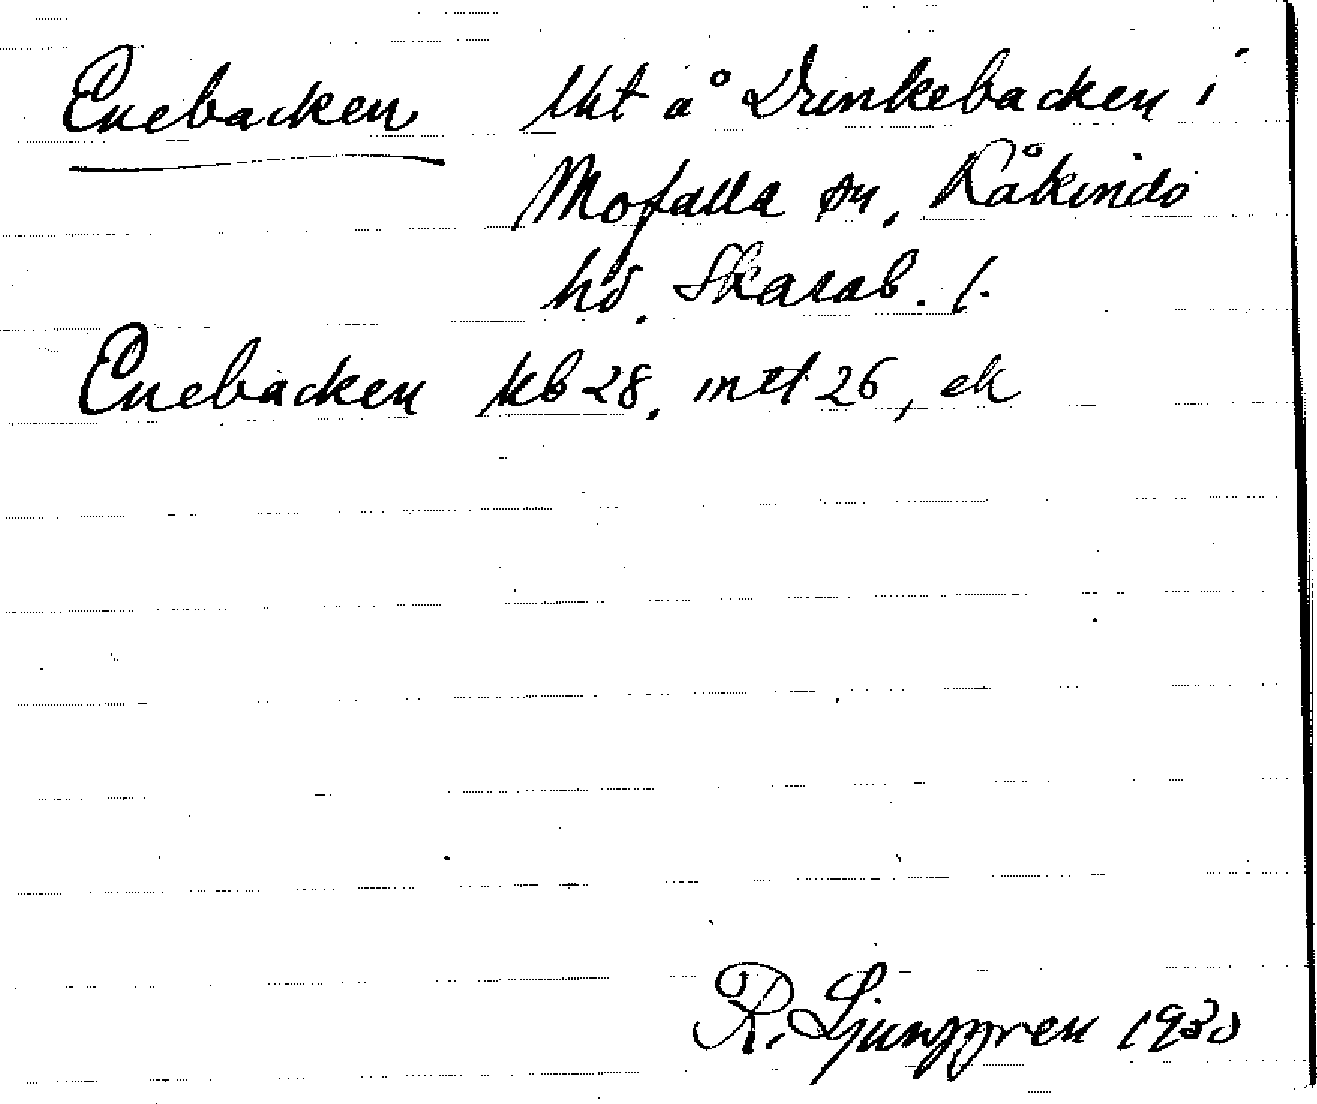 Enebacken Utt å Drinkebacken i
Mofalla sn, Kåkinds
hd. Skarab. l.
Enebacken kb 28, mtl 26, ek
R. Ljunggren 1930